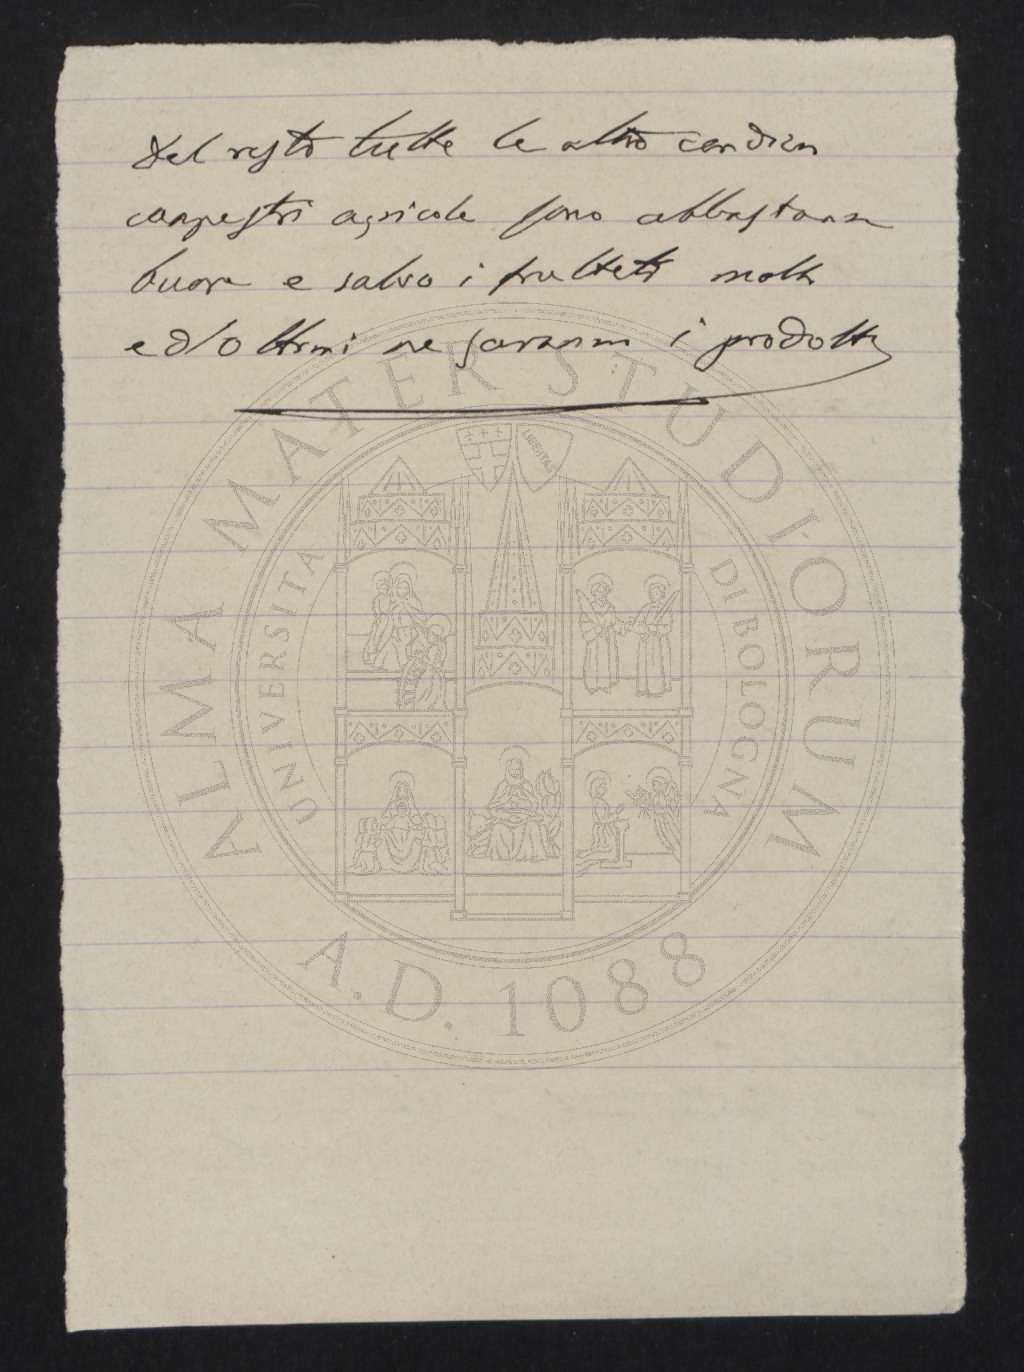 Del resto tutte le altre condizn
campestri agricole sono abbastanza
buone e salvo i frutteti molti
ed ottimi ne saranno i prodotti
ALMA MATER STUDIORUM
UNIVERSITA DI BOLOGNA
LIBERTAS
A.D. 1088